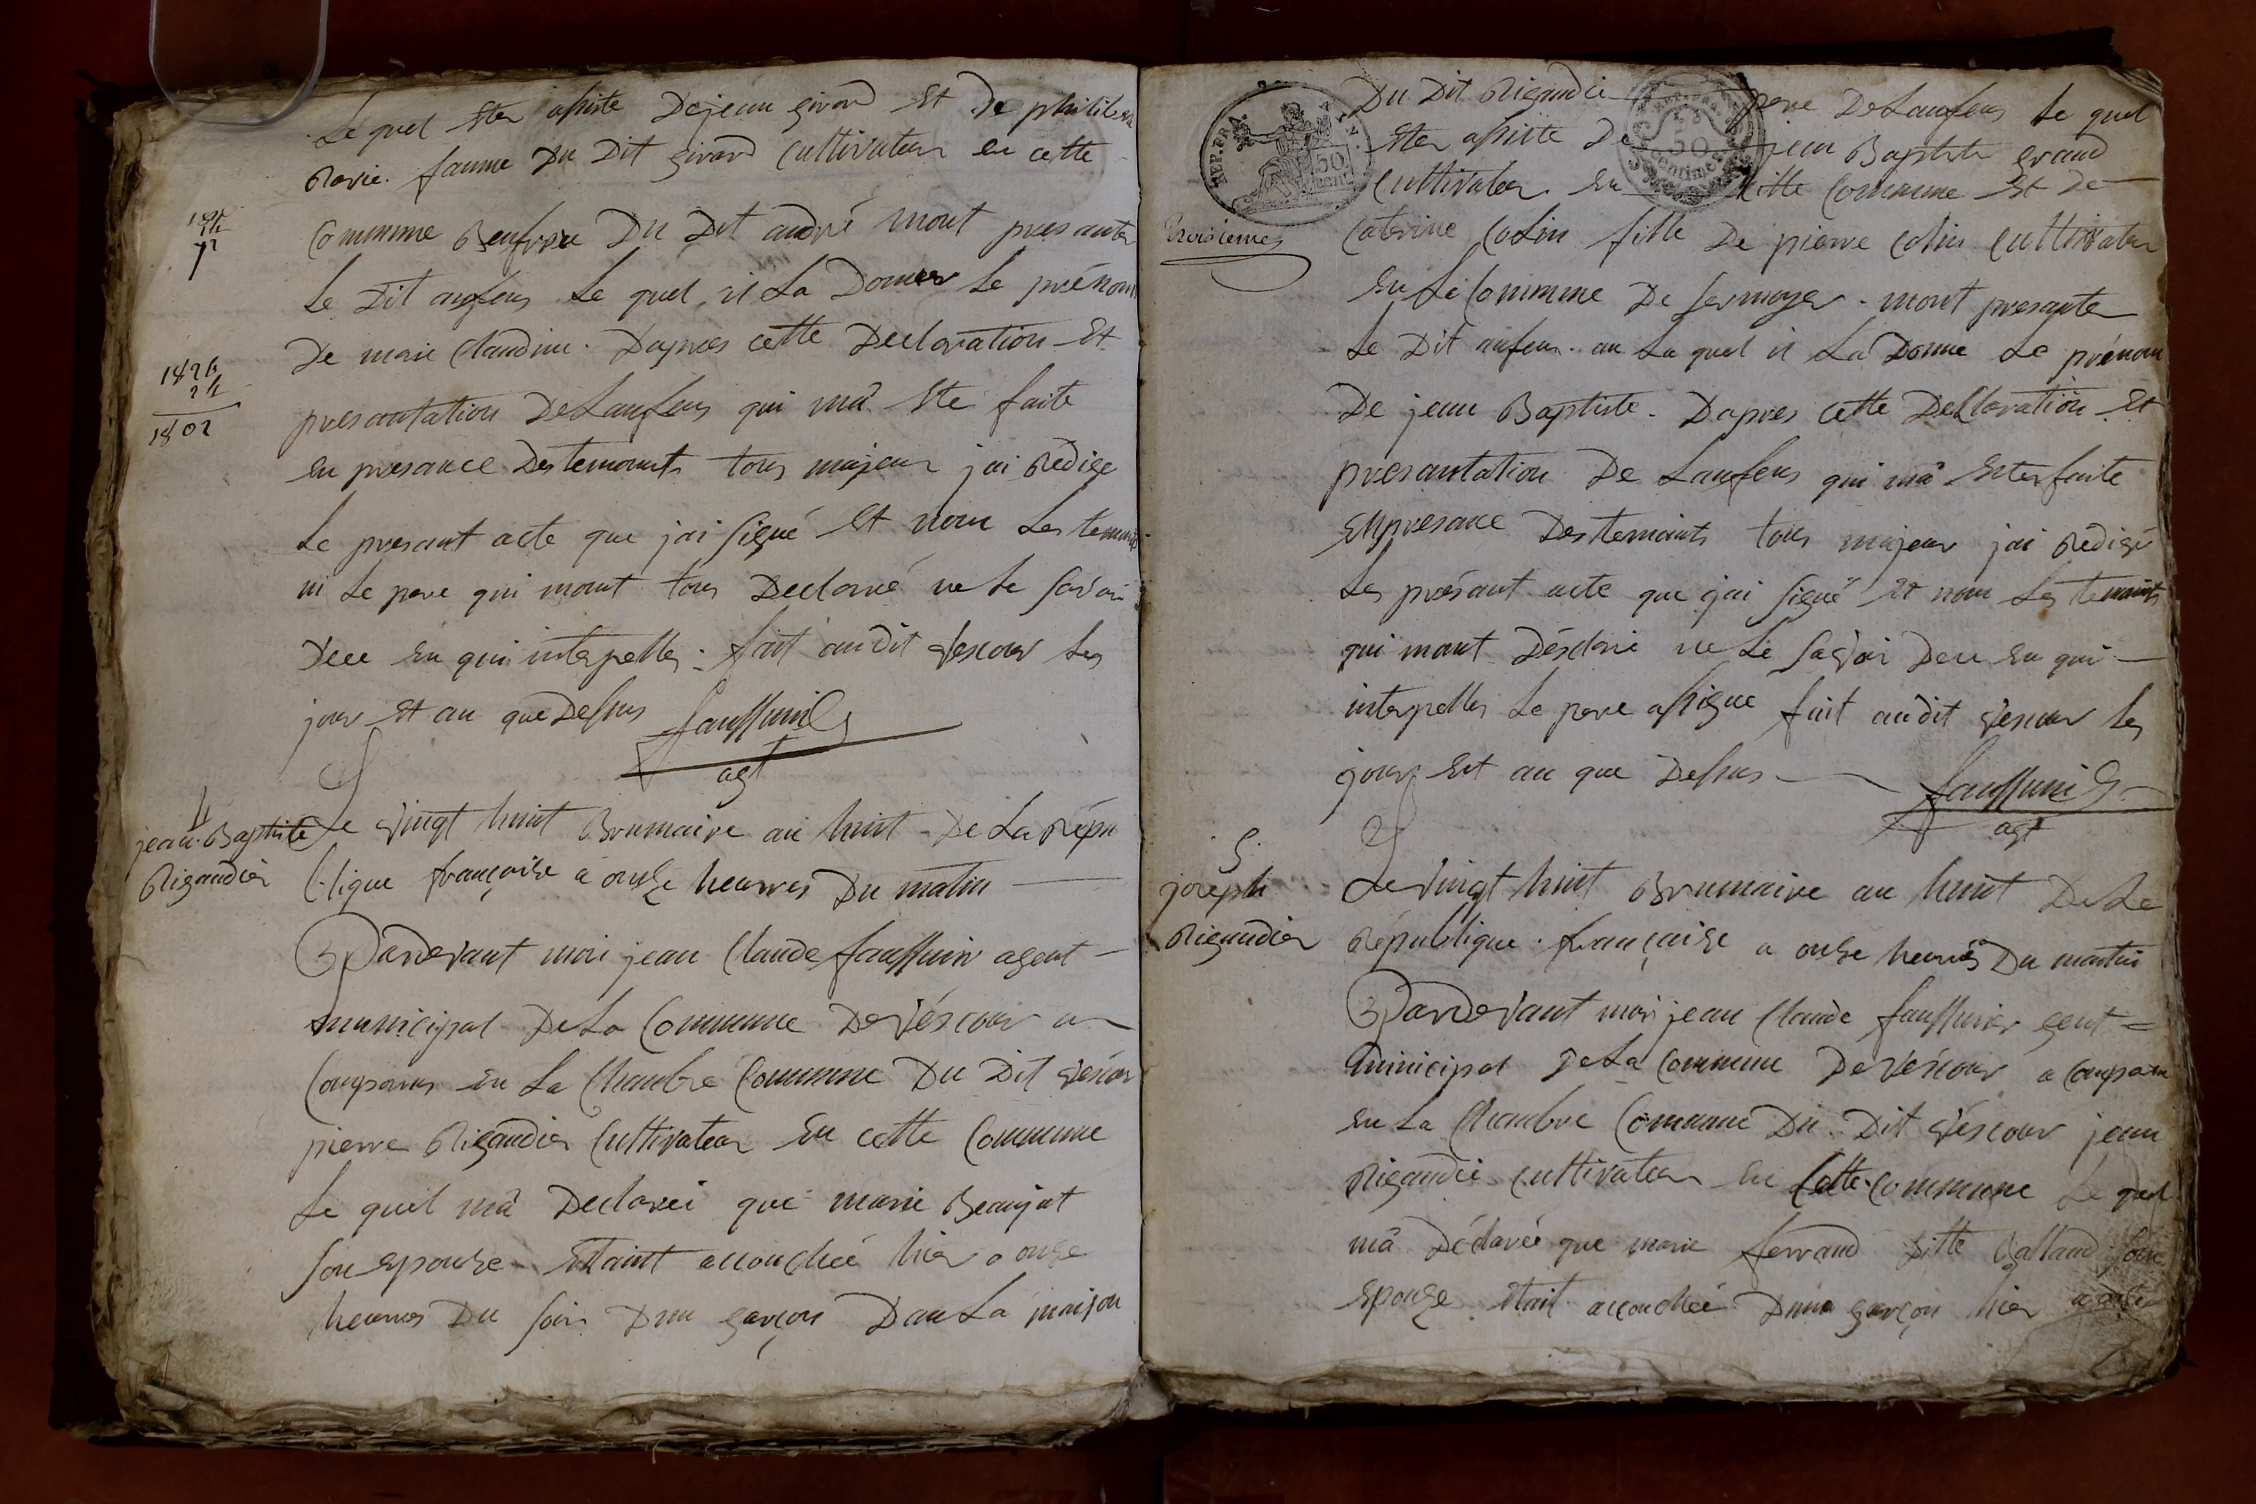 Le quel Ster assiste Dejean girard Et De philiber
Marie. famme Du Dit girard Cultivateur en cette
Commune Du Dit andré mont presanter
Le Dit anfens Le quel il La Donner Le prénom
De marie Claudine. Dapres cette Declaration Et
presantation DeLanfens qui mâ Ste faite
en presance Des temoints tous majeur jai Redige
Le presant acte que jai signé Et nom Les temoints
ni Le pere qui mont tous Declaré ne Le savoir
Dee en qui interpelles. fait audit vescour Les
jour Et an que Dessus
agt
1826
24
1802
4
jean-Baptiste
Rigaudier
Le vingt huit Brumaire an huit De La Répu
blique françaice a onze heurres Du matin
Pardevant moi jean Claude faussurier agent
municipal De La Commune De vescour a
Conparus en La Chambre Commune Du Dit vescour
pierre Rigaudier Cultivateur en cette Commune
Le quel mâ Declarei que marie Beaujat
son epouse Etaint accouchéé hier a onze
heurres Du soir Dun garçon Dans La maison
REP. FRA.
50 cent.
50 centimes
troisiemes
Du Dit Rigaudie pere De Lanfens Le quel
Ster assiste De jean Baptiste
Cultivateur en Commune Et De
Caterine Colin fille De pierre Colin Cultivateur
en Le Commune De sermoyer. mont presanter
Le Dit anfens. au La quel il La Donne Le prénom
De jean Baptiste. Dapres cette Desclaration Et
presantation De Lanfens qui mâ Ester faite
En presance Des temoints tous majeur jai Redigé
Les présant acte que jai signé Et nom Les temoints
qui mont Désclaré ne Le savoir Dee en qui
interpelles Le pere assigne fait audit vescour Les
jour Est an que Dessus
agt
5.
joseph
Rigaudier
Le vingt huit Brumaire an huit De Le
République. française a onze heurres Du mattin
Pardevant moi jean Claude faussurier gent
municipal De La Commune De vescour a Conparu
en La Chambre Commune Du Dit vescour jean
Rigaudié Cultivateur en Cette Commune Le quel
mâ Déclareé que marie ferrand ditte Galland son
Epouze Etait accouchéé Dun garçon hier